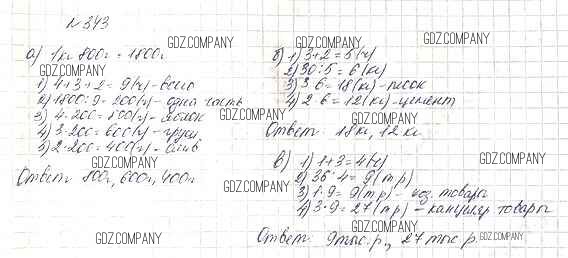 № 343
а) 1кг 800г = 1800г
1) 4+3+2=9(ч)-всего
2) 1800:9=200(г)-одна часть
3) 4·200=800(г)-яблок
4) 3·200=600(г)-груш
5) 2·200=400(г)-слив
Ответ: 800г, 600г, 400г.
б) 1) 3+2=5(ч)
2) 30:5=6(кг)
3) 3·6=18(кг)-песок
4) 2·6=12(кг)-цемент
Ответ: 18кг, 12кг
в) 1) 1+3=4(ч)
2) 36:4=9(т р)
3) 1·9=9(т р)- хоз. товары
4) 3·9=27(т р)- канцеляр товары
Ответ: 9тыс. р., 27 тыс. р.
GDZ.COMPANY
GDZ.COMPANY
GDZ.COMPANY
GDZ.COMPANY
GDZ.COMPANY
GDZ.COMPANY
GDZ.COMPANY
GDZ.COMPANY
GDZ.COMPANY
GDZ.COMPANY
GDZ.COMPANY